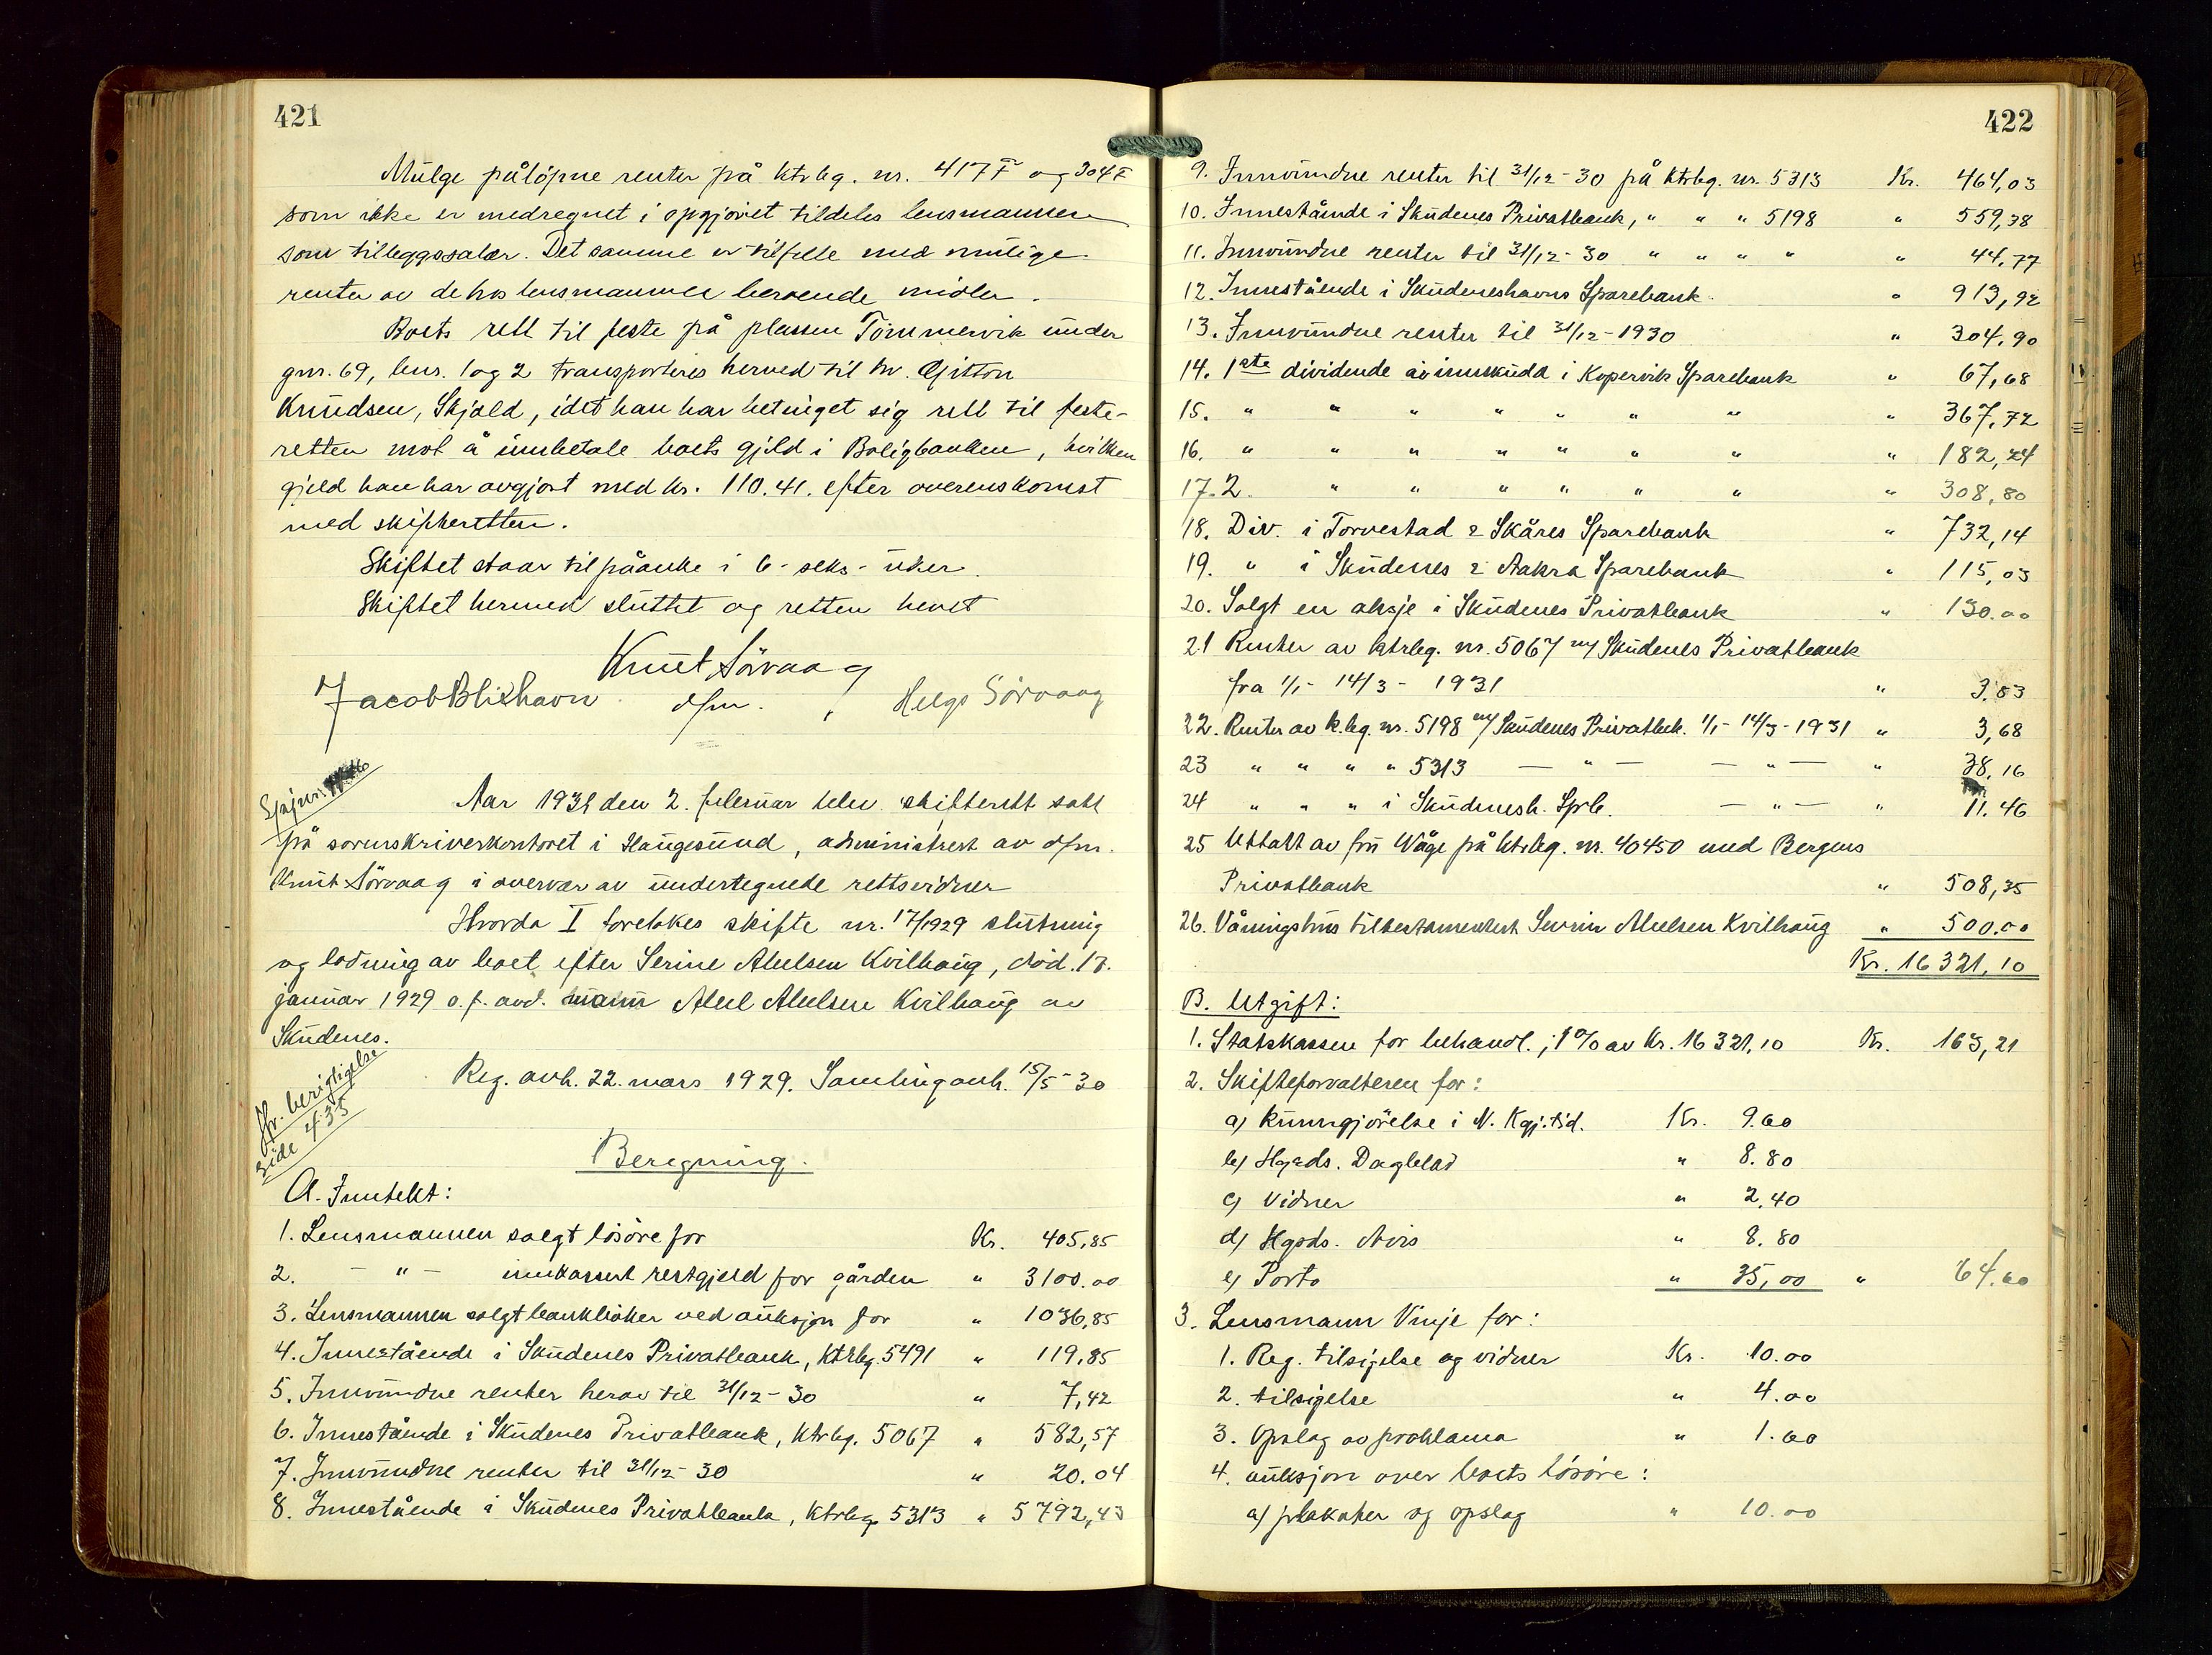 421
Mulge påløpne renter på ktrbg. nr. 417 F og 304 F
som ikke er medregnet i opgjøret tildeles lensmannen
som tilleggssalær. Det samme er tilfelle med mulige
renter av de hos lensmannen beroende midler.
Boets rett til feste på plassen Tømmervik under
gnr. 69, bnr. 1 og 2 transporteres herved til hr. Gitton
Knudsen, Skjold, idet han har betinget sig rett til feste-
retten mot å innbetale boets gjeld i Boligbanken, hvilken
gjeld han har avgjort med kr. 110.41. efter overenskomst
med skifteretten.
Skiftet staar til påanke i 6 - seks - uker.
Skiftet hermed sluttet og retten hevet
Knut Sørvaag
Jacob Blikhavn. dfm. Helge Sørvaag
Aar 1931 den 2. februar blev skifterett satt
på sorenskriverkontoret i Haugesund, administrert av dfm.
Knut Sørvaag i overvær av undertegnede rettsvidner
Hvorda I foretokes skifte nr. 17/1929 slutning
og lodning av boet efter Serine Abelsen Kvilhaug, død 17.
januar 1929 o.f. avd. mann Abel Abelsen Kvilhaug av
Skudenes.
Jfr. berigtigelse
side 435
Reg. avh. 22. mars 1929. Samling avh. 15/5-30
Beregning.
A. Inntekt:
1. Lensmannen solgt løsøre for Kr. 405,85
2. - " - innkassert restgjeld for gården " 3100.00
3. Lensmannen solgt bankbøker ved auksjon for " 1036,85
4. Innestående i Skudenes Privatbank, ktrbg. 5491 " 119,85
5. Innvundne renter herav til 31/12-30 " 7,42
6. Innestående i Skudenes Privatbank, ktrbg. 5067 " 582,57
7. Innvundne renter til 31/12-30 " 20.04
8. Innestående i Skudenes Privatbank, ktrbg. 5313 " 5792,43
422
9. Innvundne renter til 31/12-30 på ktrbg. nr. 5313 Kr. 464,03
10. Innestående i Skudenes Privatbank, " " " 5198 " 559,38
11. Innvundne renter til 31/12-30 " " " " " 44,77
12. Innestående i Skudeneshavns Sparebank. " 913,92
13. Innvundne renter til 31/12-1930 " 304,90
14. 1ste dividende av innskudd i Kopervik Sparebank " 67,68
15. " " " " " " " " 367,72
16. " " " " " " " " 182,24
17. 2. " " " " " " " 308,80
18. Div. i Torvestad & Skåres Sparebank " 732,14
19. " i Skudenes & Aakra Sparebank " 115,03
20. Solgt en aksje i Skudenes Privatbank " 130.00
21 Renter av ktrbg. nr. 5067 m/ Skudenes Privatbank
fra 1/1- 14/3 - 1931 " 3.83
22. Renter av k.bg. nr. 5198 m/ Skudenes Privatbk. 1/1-14/3-1931 " 3,68
23 " " " " 5313 - " - - " - " 38,16
24 " " " i Skudenesh. Sprb. - " - " 11.46
25 Uttatt av fru Våge på ktrbg. nr. 40450 med Bergens
Privatbank " 508,35
26. Våningshus tilbestamentert Sevrin Abelsen Kvilhaug " 500.00
Kr. 16321,10
B. Utgift:
1. Statskassen for behandl.; 1% av Kr. 16321,10 Kr. 163,21
2. Skifteforvalteren for:
a) kunngjørelse i N. Kgj.tid. Kr. 9.60
b) Hgsds. Dagblad " 8.80
c) Vidner " 2.40
d) Hgsds. Avis " 8.80
e) Porto " 35,00 " 64.60
3. Lensmann Vinje for:
1. Reg. tilsigelse og vidner Kr. 10.00
2. tilsigelse " 4.00
3. Opslag av proklama " 1.60
4. auksjon over boets løsøre:
a) plakater og opslag " 10.00